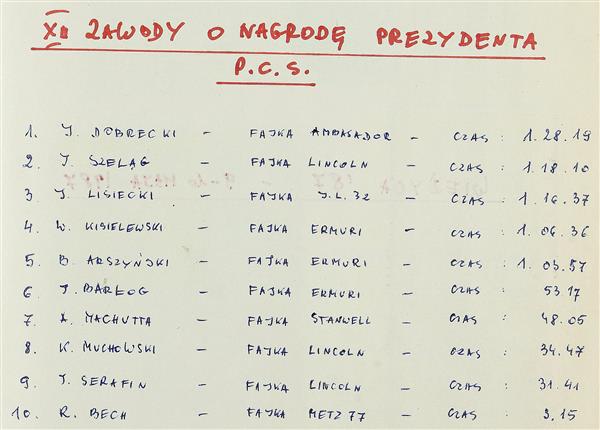 XII ZAWODY O NAGRODĘ PREZYDENTA
P.C.S.
1. J. DOBRECKI – FAJKA AMBASADOR – CZAS : 1.28.19
2. J. SZELĄG – FAJKA LINCOLN – CZAS : 1.18.10
3 J. LISIECKI – FAJKA J.L. 32 – CZAS : 1.16.37
4. W. KISIELEWSKI – FAJKA ERMURI – CZAS : 1.06.36
5. B. ARSZYŃSKI – FAJKA ERMURI – CZAS : 1.03.57
6 J. BARŁOG – FAJKA ERMURI – CZAS : 53.17
7. A. MACHUTTA – FAJKA STANWELL – CZAS : 48.05
8. K. MUCHOWSKI – FAJKA LINCOLN – CZAS : 34.47
9. J. SERAFIN – FAJKA LINCOLN – CZAS : 31.41
10. R. BECH – FAJKA METZ 77 – CZAS : 9.15